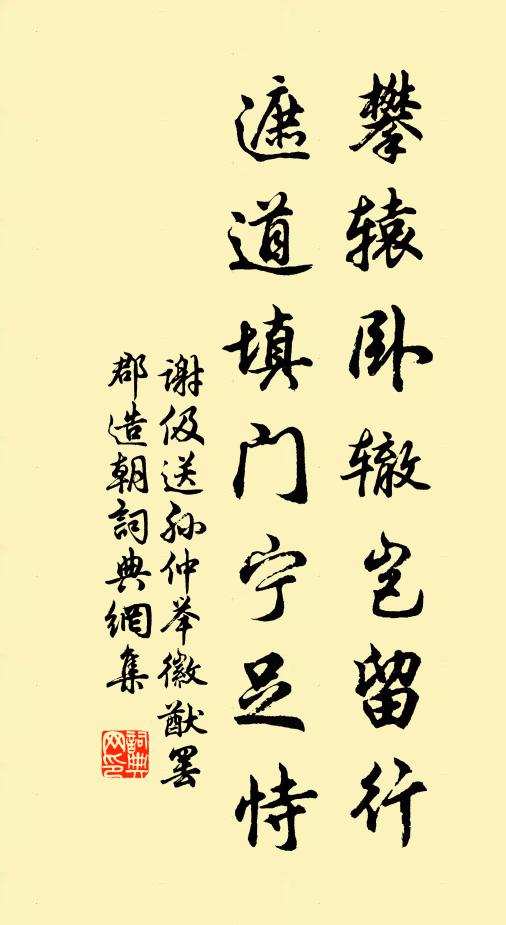 攀辕卧辙岂留行
遮道填门宁足恃
谢伋送孙仲举徽猷罢
郡造朝詞典網集
詞典
网印